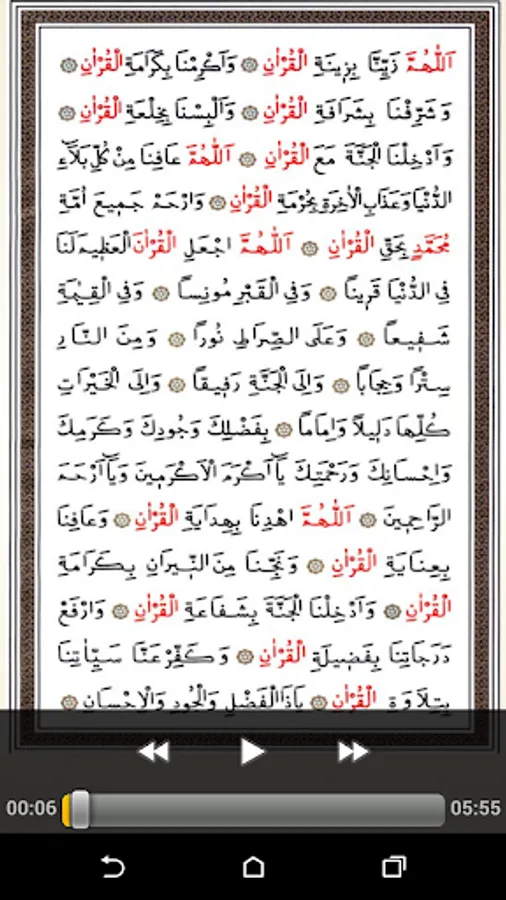 اَللّٰهُمَّ زَيِّنَّا بِزِينَةِ الْقُرْاٰنِ ۞ وَاَكْرِمْنَا بِكَرَامَةِ الْقُرْاٰنِ ۞
وَ شَرِّفْنَا بِشَرَافَةِ الْقُرْاٰنِ ۞ وَاَلْبِسْنَا بِخِلْعَةِ الْقُرْاٰنِ ۞
وَاَدْخِلْنَا الْجَنَّةَ مَعَ الْقُرْاٰنِ ۞ اَللّٰهُمَّ عَافِنَا مِنْ كُلِّ بَلَآءِ
الدُّنْيَا وَعَذَابِ الْاٰخِرَةِ بِحُرْمَةِ الْقُرْاٰنِ ۞ وَارْحَمْ جَمِيعَ اُمَّةِ
مُحَمَّدٍ بِحَقِّ الْقُرْاٰنِ ۞ اَللّٰهُمَّ اجْعَلِ الْقُرْاٰنَ الْعَظِيمَ لَنَا
فِي الدُّنْيَا قَرِينًا ۞ وَفِي الْقَبْرِ مُونِسًا ۞ وَفِي الْقِيٰمَةِ
شَفِيعاً ۞ وَعَلَى الصِّرَاطِ نُوراً ۞ وَمِنَ النَّارِ
سِتْرًا وَحِجَاباً ۞ وَاِلَى الْجَنَّةِ رَفِيقاً ۞ وَاِلَى الْخَيْرَاتِ
كُلِّهَا دَلِيلاً وَاِمَاماً ۞ بِفَضْلِكَ وَجُودِكَ وَكَرَمِكَ
وَاِحْسَانِكَ وَرَحْمَتِكَ يَآ اَكْرَمَ الْاَكْرَمِينَ وَيَآ اَرْحَمَ
الرَّاحِمِينَ ۞ اَللّٰهُمَّ اهْدِنَا بِهِدَايَةِ الْقُرْاٰنِ ۞ وَعَافِنَا
بِعِنَايَةِ الْقُرْاٰنِ ۞ وَنَجِّنَا مِنَ النِّيرَانِ بِكَرَامَةِ
الْقُرْاٰنِ ۞ وَاَدْخِلْنَا الْجَنَّةَ بِشَفَاعَةِ الْقُرْاٰنِ ۞ وَارْفَعْ
دَرَجَاتِنَا بِفَضِيلَةِ الْقُرْاٰنِ ۞ وَكَفِّرْ عَنَّا سَيِّاٰتِنَا
بِتِلَاوَةِ الْقُرْاٰنِ ۞ يَاذَا الْفَضْلِ وَالْجُودِ وَالْاِحْسَانِ ۞
00:06 05:55